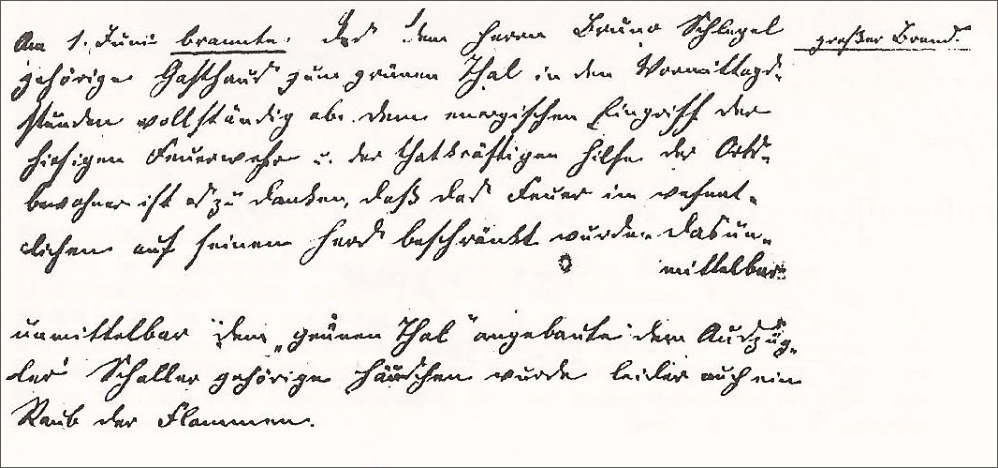 Am 1. Juni brannte das dem Herrn Bruno Schlegel
großer Brand.
gehörige Gasthaus zum grünen Thal in den Vormittags-
stunden vollständig ab. Dem energischen Eingriff der
hiesigen Feuerwehr u. der thatkräftigen Hilfe der Orts-
bewohner ist es zu danken, daß das Feuer im wesent-
lichen auf seinen Herd beschränkt wurde. Das un-
mittelbar
unmittelbar dem „grünen Thal" angebaute dem Auszüg-
ler Schaller gehörige Häuschen wurde leider auch ein
Raub der Flammen.